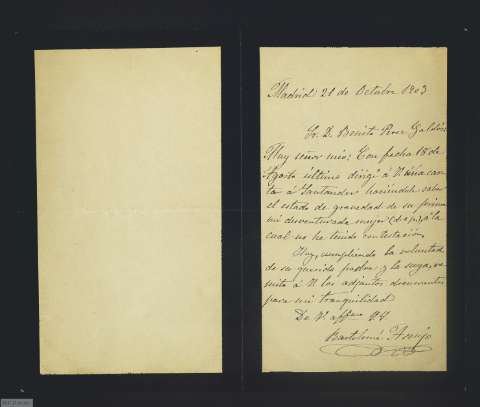 Madrid 21 de Octubre 1903
Sr. D. Benito Perez Galdós
Muy señor mio: Con fecha 18 de
Agosto último dirigí á V. una car-
ta á Santander haciendole saber
el estado de gravedad de su prima
mi desventurada mujer (d.e.p.) á la
cual no he tenido contestación.
Hoy, cumpliendo la voluntad
de su querido padre y la suya, re-
mito á V. los adjuntos documentos
para mi tranquilidad.
De V. affmo
Bartolomé Araujo